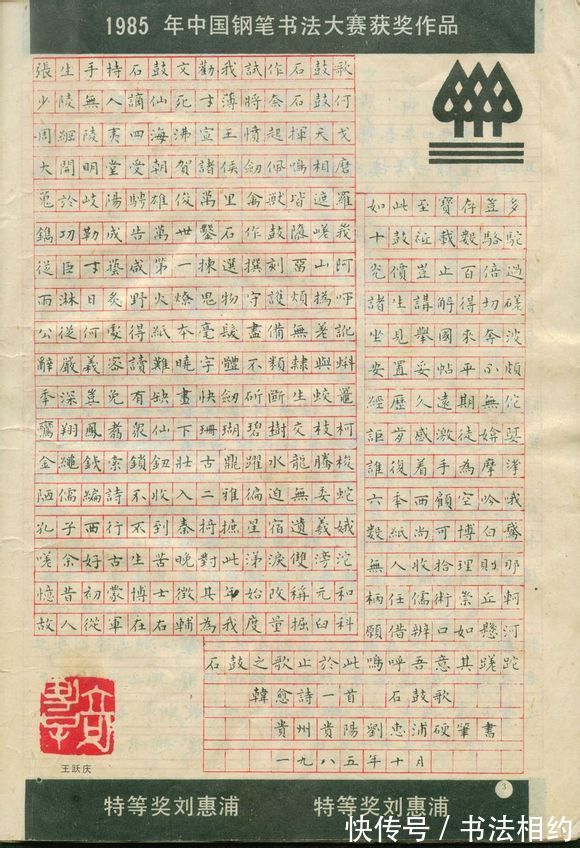 1985 年中国钢笔书法大赛获奖作品
張生手持石鼓文勸我試作石鼓歌
少陵無人謫仙死才薄將奈石鼓何
周綱陵夷四海沸宣王憤起揮天戈
大開明堂受朝賀諸侯劍佩鳴相磨
蒐於岐陽騁雄俊萬里禽獸皆遮羅
鐫功勒成告萬世鑿石作鼓隳嵯峨
從臣才藝咸第一揀選撰刻留山阿
雨淋日炙野火燎鬼物守護煩撝呵
公從何處得紙本毫髮盡備無差訛
辭嚴義密讀難曉字體不類隸與蝌
年深豈免有缺畫快劍斫斷生蛟鼉
鸞翔鳳翥衆仙下珊瑚碧樹交枝柯
金繩鐵索鎖鈕壯古鼎躍水龍騰梭
陋儒編詩不收入二雅褊迫無委蛇
孔子西行不到秦掎摭星宿遺羲娥
嗟余好古生苦晚對此涕淚雙滂沱
憶昔初蒙博士徵其年始改稱元和
故人從軍在右輔為我度量掘臼科
如此至寶存豈多
十鼓祗載數駱駝
光價豈止百倍過
諸生講解得切磋
坐見舉國來奔波
安置妥帖平不頗
經歷久遠期無佗
詎肯感激徒媕娿
誰復着手為摩挲
六年西顧空吟哦
數紙尚可博白鵝
無人收拾理則那
柄任儒術崇丘軻
願借辨口如懸河
石鼓之歌止於此嗚呼吾意其蹉跎
韓愈詩一首 石鼓歌
貴州貴陽劉惠浦硬筆書
一九八五年十月
王跃庆
3
特等奖刘惠浦 特等奖刘惠浦
快传号／书法相约